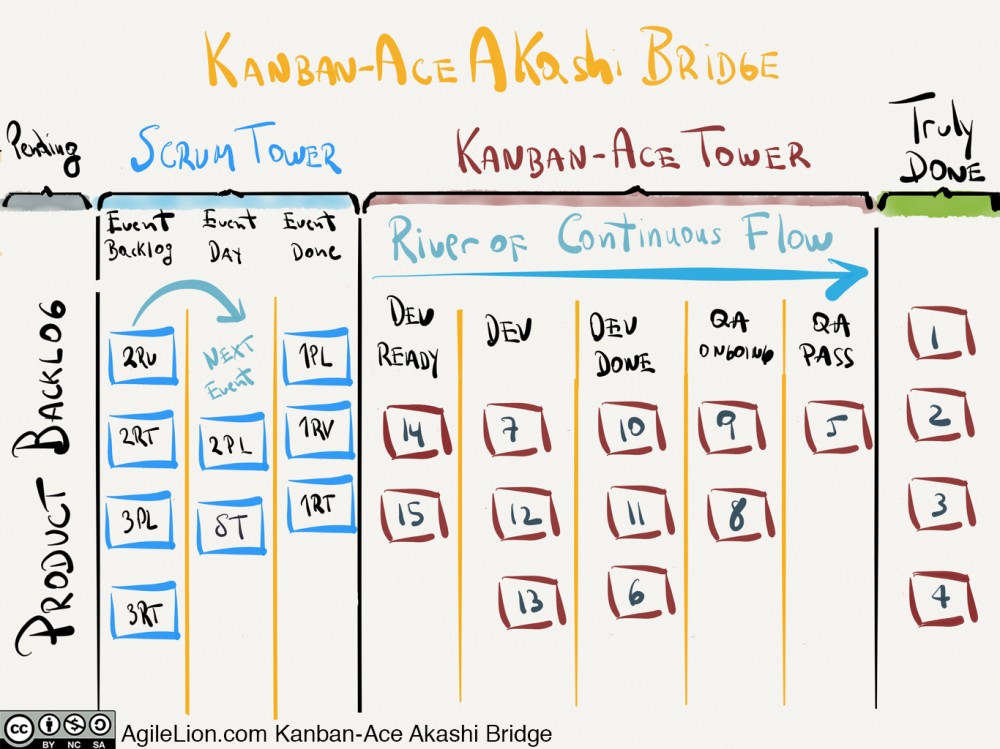 KANBAN-ACE AKashi BRIDGE
Pending
SCRUM TOWER
KANBAN-ACE TOWER
Truly
DONE
Event
Backlog
Event
DAY
Event
Done
River of Continuous Flow
PRODUCT BACKLOG
NEXT
Event
DEV
READY
DEV
DEV
DONE
QA
ONGOING
QA
PASS
2RV
1PL
1
2RT
2PL
1RV
14
7
10
9
5
2
3PL
ST
1RT
15
12
11
8
3
3RT
13
6
4
cc
BY NC SA
AgileLion.com Kanban-Ace Akashi Bridge